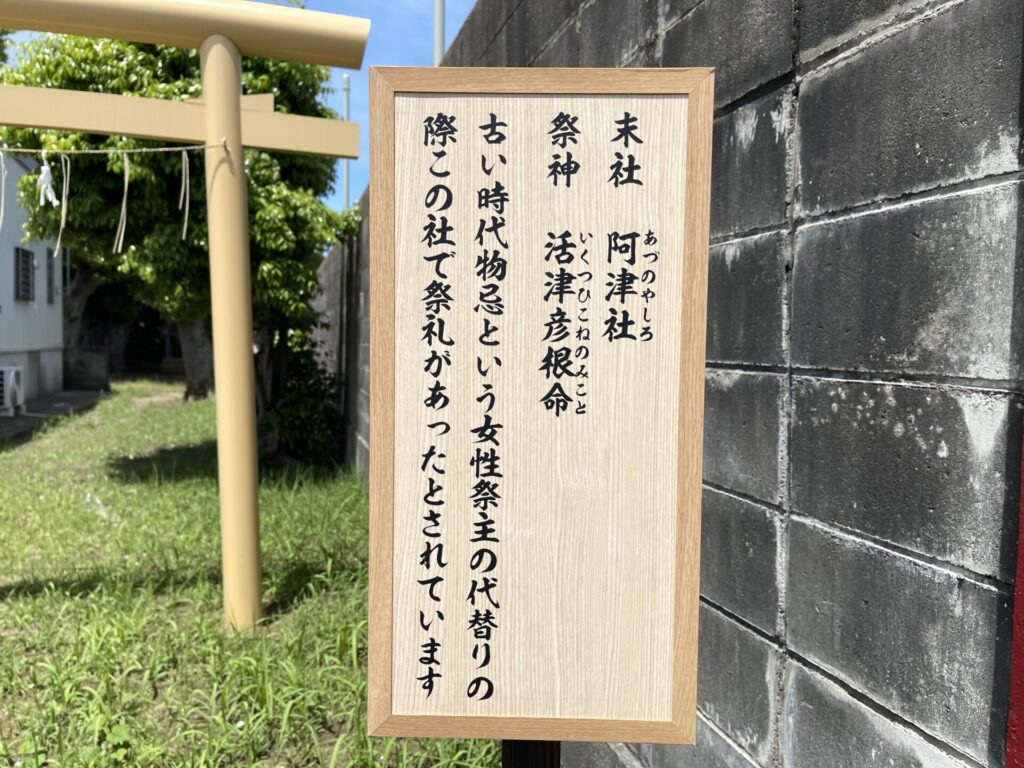 末社 阿津社
あづのやしろ
祭神 活津彦根命
いくつひこねのみこと
古い時代物忌という女性祭主の代替りの
際この社で祭礼があったとされています